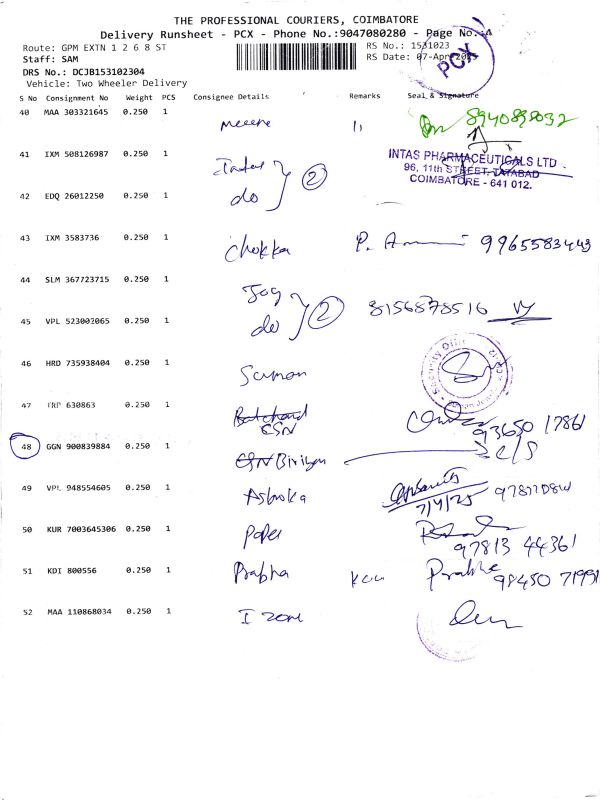 THE PROFESSIONAL COURIERS, COIMBATORE
Delivery Runsheet - PCX - Phone No.:9047080280 - Page No.:4
Route: GPM EXTN 1 2 6 8 ST
RS No.: 1531023
Staff: SAM
RS Date: 07-Apr-2025
PCX
DRS No.: DCJB153102304
Vehicle: Two Wheeler Delivery
S No Consignment No Weight PCS Consignee Details Remarks Seal & Signature
40 MAA 303321645 0.250 1
41 IXM 508126987 0.250 1
INTAS PHARMACEUTICALS LTD.
96, 11th STREET, TATABAD
COIMBATORE - 641 012.
2
42 EDQ 26012250 0.250 1 do
43 IXM 3583736 0.250 1 chokka P. 9965583443
44 SLM 367723715 0.250 1 Jog
2 8156878516
45 VPL 523002065 0.250 1 do
46 HRD 735938404 0.250 1 Suman
Security Office
47 TRP 630863 0.250 1
ESN 93650 17861
48 GGN 900839884 0.250 1 c/s
49 VPL 948554605 0.250 1 Ashoka
7/4/25
50 KUR 7003645306 0.250 1
97813 44361
51 KDI 800556 0.250 1 Prabha Prabha
98450 71991
52 MAA 110868034 0.250 1 I zone